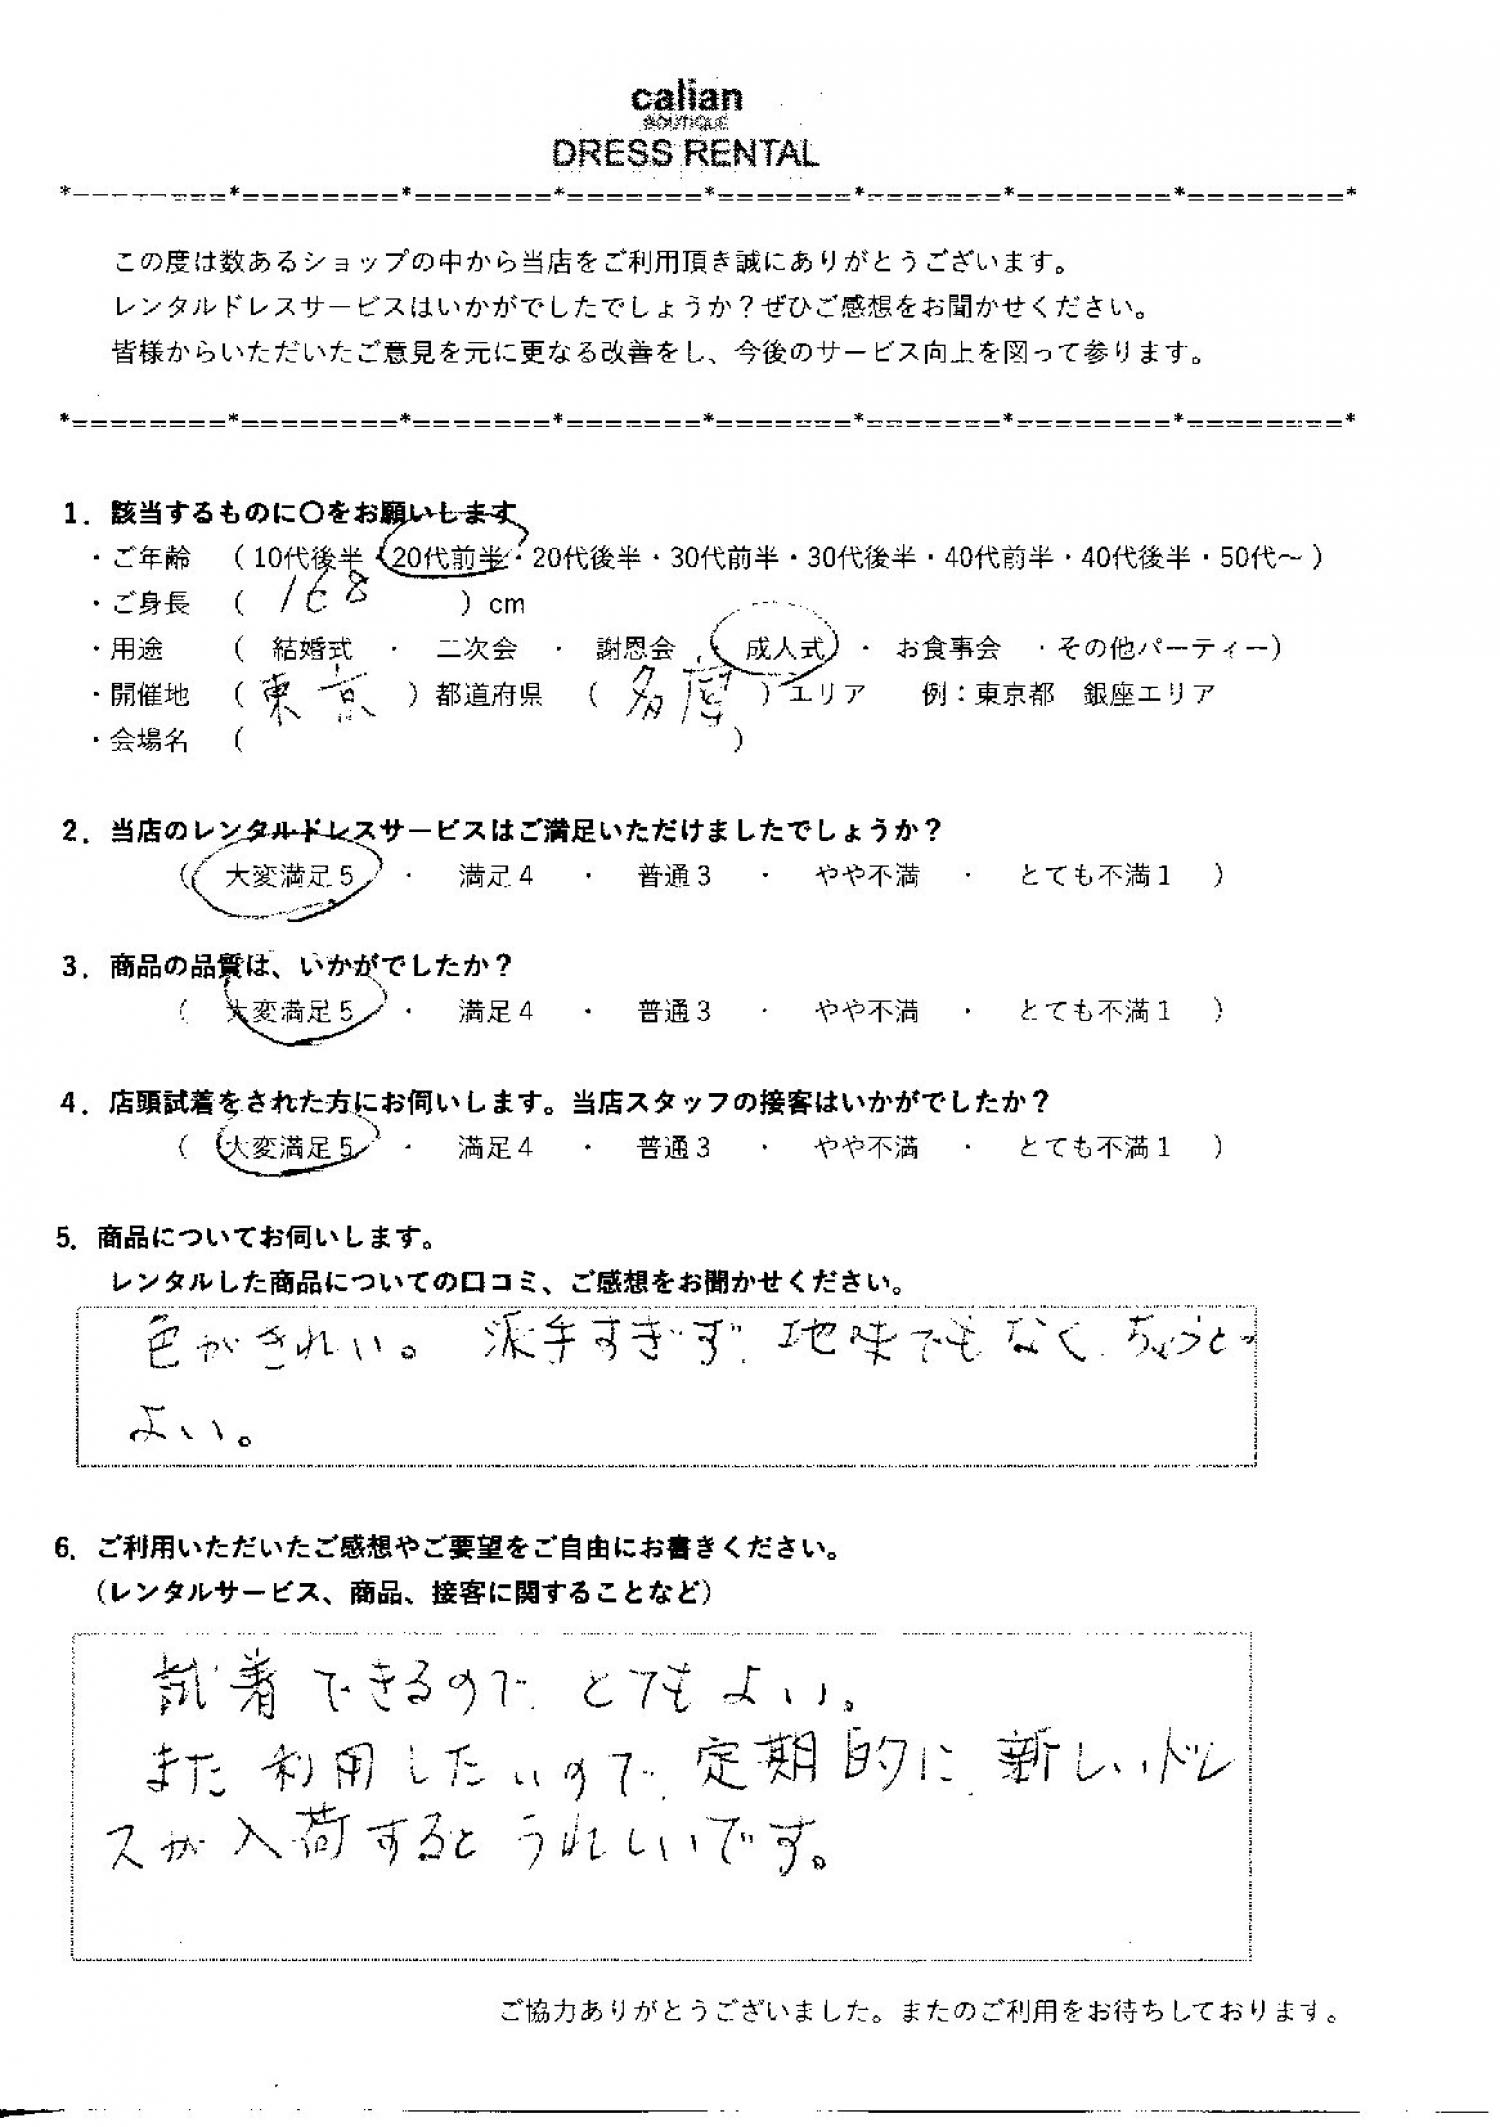 calian
BOUTIQUE
DRESS RENTAL
*========*========*=======*=======*=======*=======*========*========*
この度は数あるショップの中から当店をご利用頂き誠にありがとうございます。
レンタルドレスサービスはいかがでしたでしょうか？ぜひご感想をお聞かせください。
皆様からいただいたご意見を元に更なる改善をし、今後のサービス向上を図って参ります。
*========*========*=======*=======*=======*=======*========*========*
1．該当するものに〇をお願いします
・ご年齢　（ 10代後半・20代前半・20代後半・30代前半・30代後半・40代前半・40代後半・50代～ ）
・ご身長　（　168　）cm
・用途　（　結婚式　・　二次会　・　謝恩会　・　成人式　・　お食事会　・その他パーティー）
・開催地　（ 東京 ）都道府県　（ 多摩 ）エリア　例：東京都　銀座エリア
・会場名　（　　　）
2．当店のレンタルドレスサービスはご満足いただけましたでしょうか？
（　大変満足５　・　満足４　・　普通３　・　やや不満　・　とても不満１　）
3．商品の品質は、いかがでしたか？
（　大変満足５　・　満足４　・　普通３　・　やや不満　・　とても不満１　）
4．店頭試着をされた方にお伺いします。当店スタッフの接客はいかがでしたか？
（　大変満足５　・　満足４　・　普通３　・　やや不満　・　とても不満１　）
5．商品についてお伺いします。
レンタルした商品についての口コミ、ご感想をお聞かせください。
色がきれい。派手すぎず、地味でもなく、ちょうど
よい。
6．ご利用いただいたご感想やご要望をご自由にお書きください。
（レンタルサービス、商品、接客に関することなど）
試着できるので、とてもよい。
また利用したいので、定期的に、新しいドレ
スが入荷するとうれしいです。
ご協力ありがとうございました。またのご利用をお待ちしております。